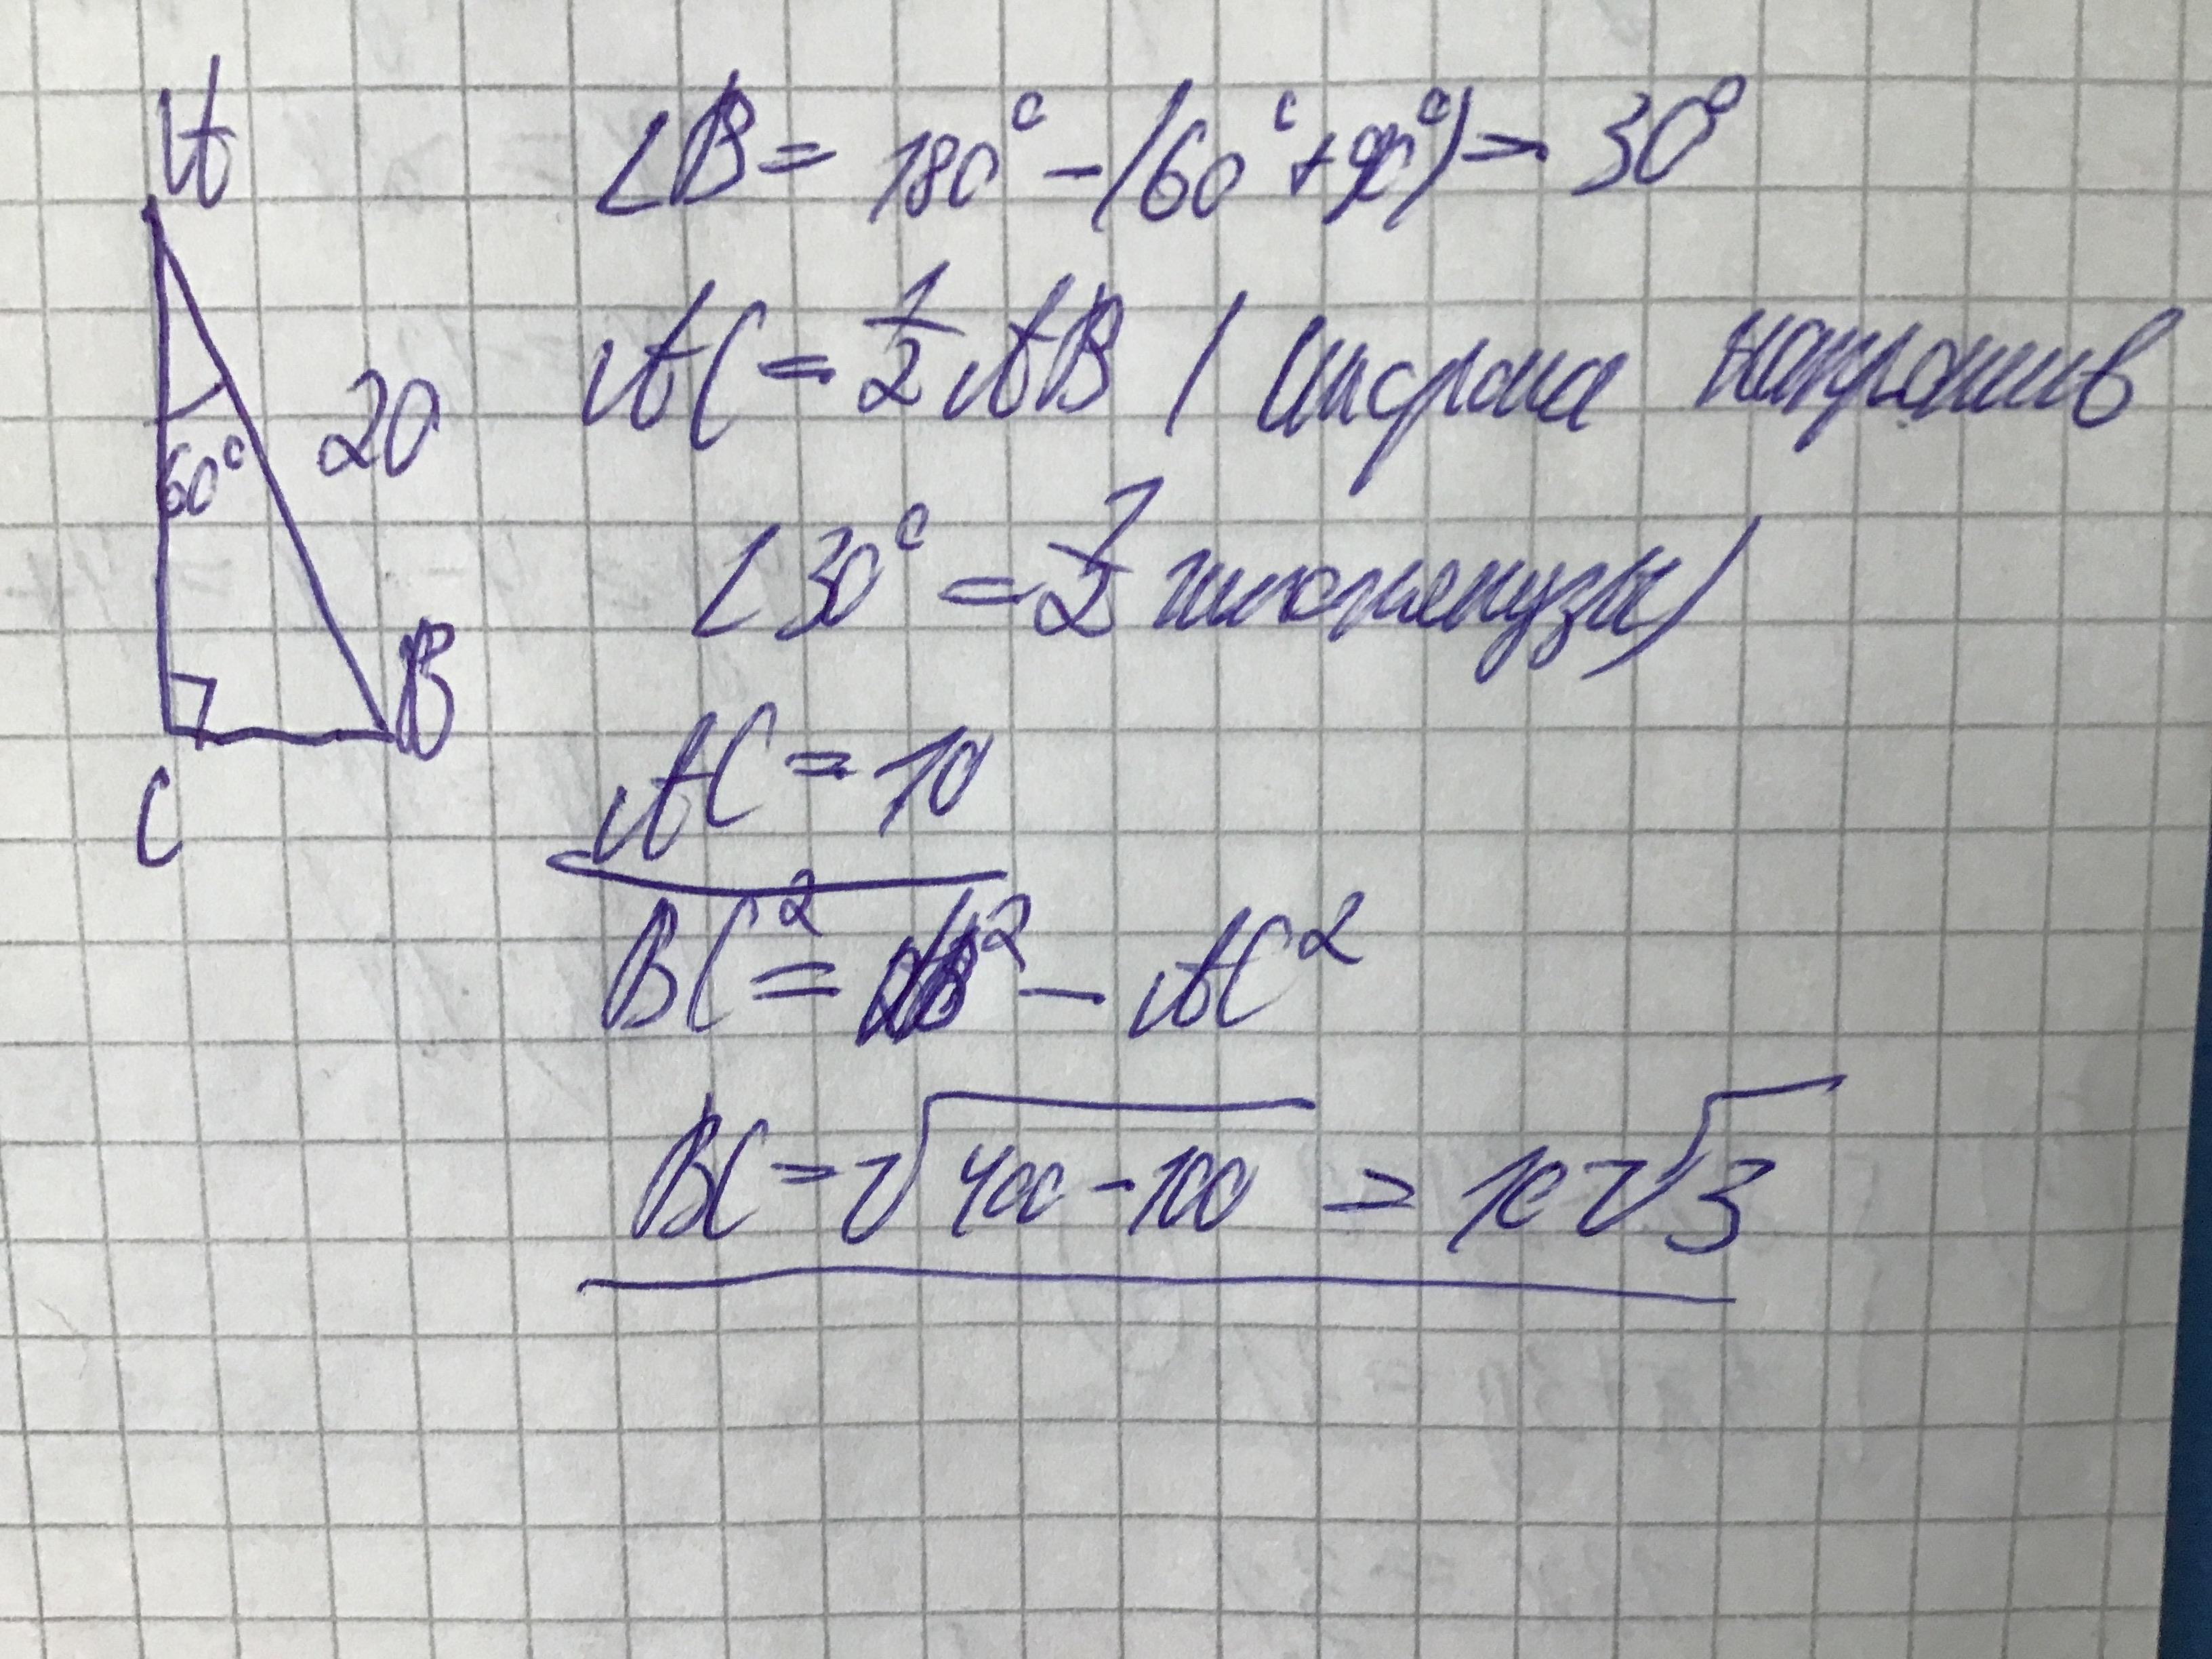 A
∠B = 180° - (60° + 90°) = 30°
20
60°
AC = 1/2 AB (сторона напротив
∠30° = 1/2 гипотенузы)
B
C
AC = 10
BC² = AB² - AC²
BC = √400 - 100 = 10√3